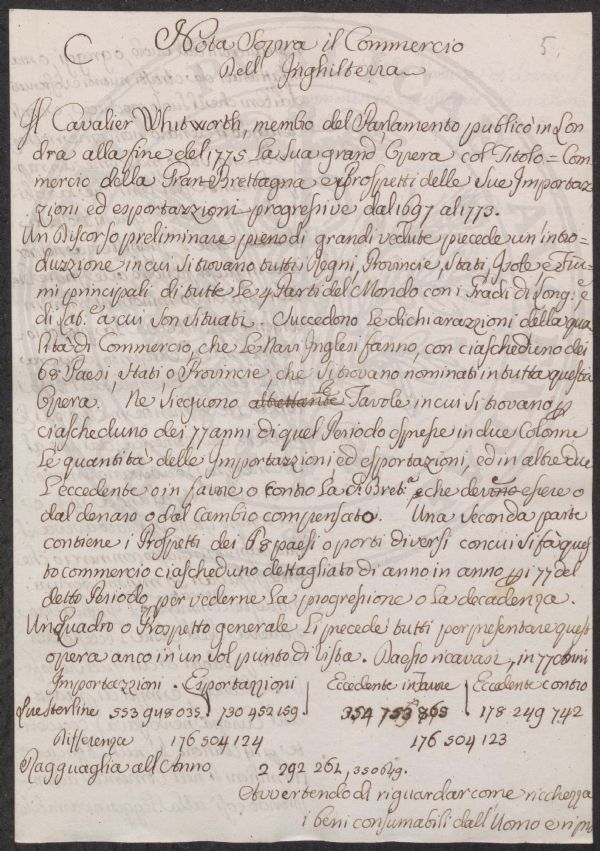 5.
Nota Sopra il Commercio
Dell' Inghilterra
Il Cavalier Whitworth, membo del Parlamento publicò in Lon
dra alla fine del 1775 la sua grand' Opera col Titolo = Com
mercio della Gran-Brettagna e prospetti delle sue Importaz
zioni ed esportazzioni progressive dal 1697 al 1773.
Un Discorso preliminare pieno di grandi vedute precede un' intro=
duzzione in cui si trovano tutti i Regni, Provincie, Stati, Isole e Fiu=
mi principali di tutte le 4 Parti del Mondo con i Gradi di Long.e e
di Lat.e a cui son situati. Succedono le dichiarazzioni della qua
lità di Commercio, che le Navi Inglesi fanno, con ciascheduno dei
68 Paesi, Stati o Provincie, che si trovano nominati in tutta questa
Opera. Ne sieguono le Tavole in cui si trovano p
ciascheduno dei 77 anni di quel Periodo espresse in due Colonne
le quantità delle Importazzioni ed esportazioni, ed in altre due
l'eccedente o in favore o contro la G. Bret.a che deve essere o
dal denaro o dal Cambio compensato. Una seconda parte
contiene i Prospetti dei 68 paesi o porti diversi con cui si fà ques
to commercio ciascheduno dettagliato di anno in anno pi 77 del
detto Periodo per vederne la progressione o la decadenza.
Un Quadro o Prospetto generale li precede tutti per presentare quest'
opera anco in un sol punto di vista. Da esso ricavasi, in 77 anni
Importazzioni . Esportazzioni | Eccedente in favore | Eccedente contro
Lire Sterline 553 948 035 | 730 452 159 | 354 753 865 | 178 249 742
Differenza 176 504 124 176 504 123
Ragguaglia all' Anno 2 292 261, 350649.
Avvertendo di riguardar come ricchezza
i beni consumabili dall' Uomo e ripro